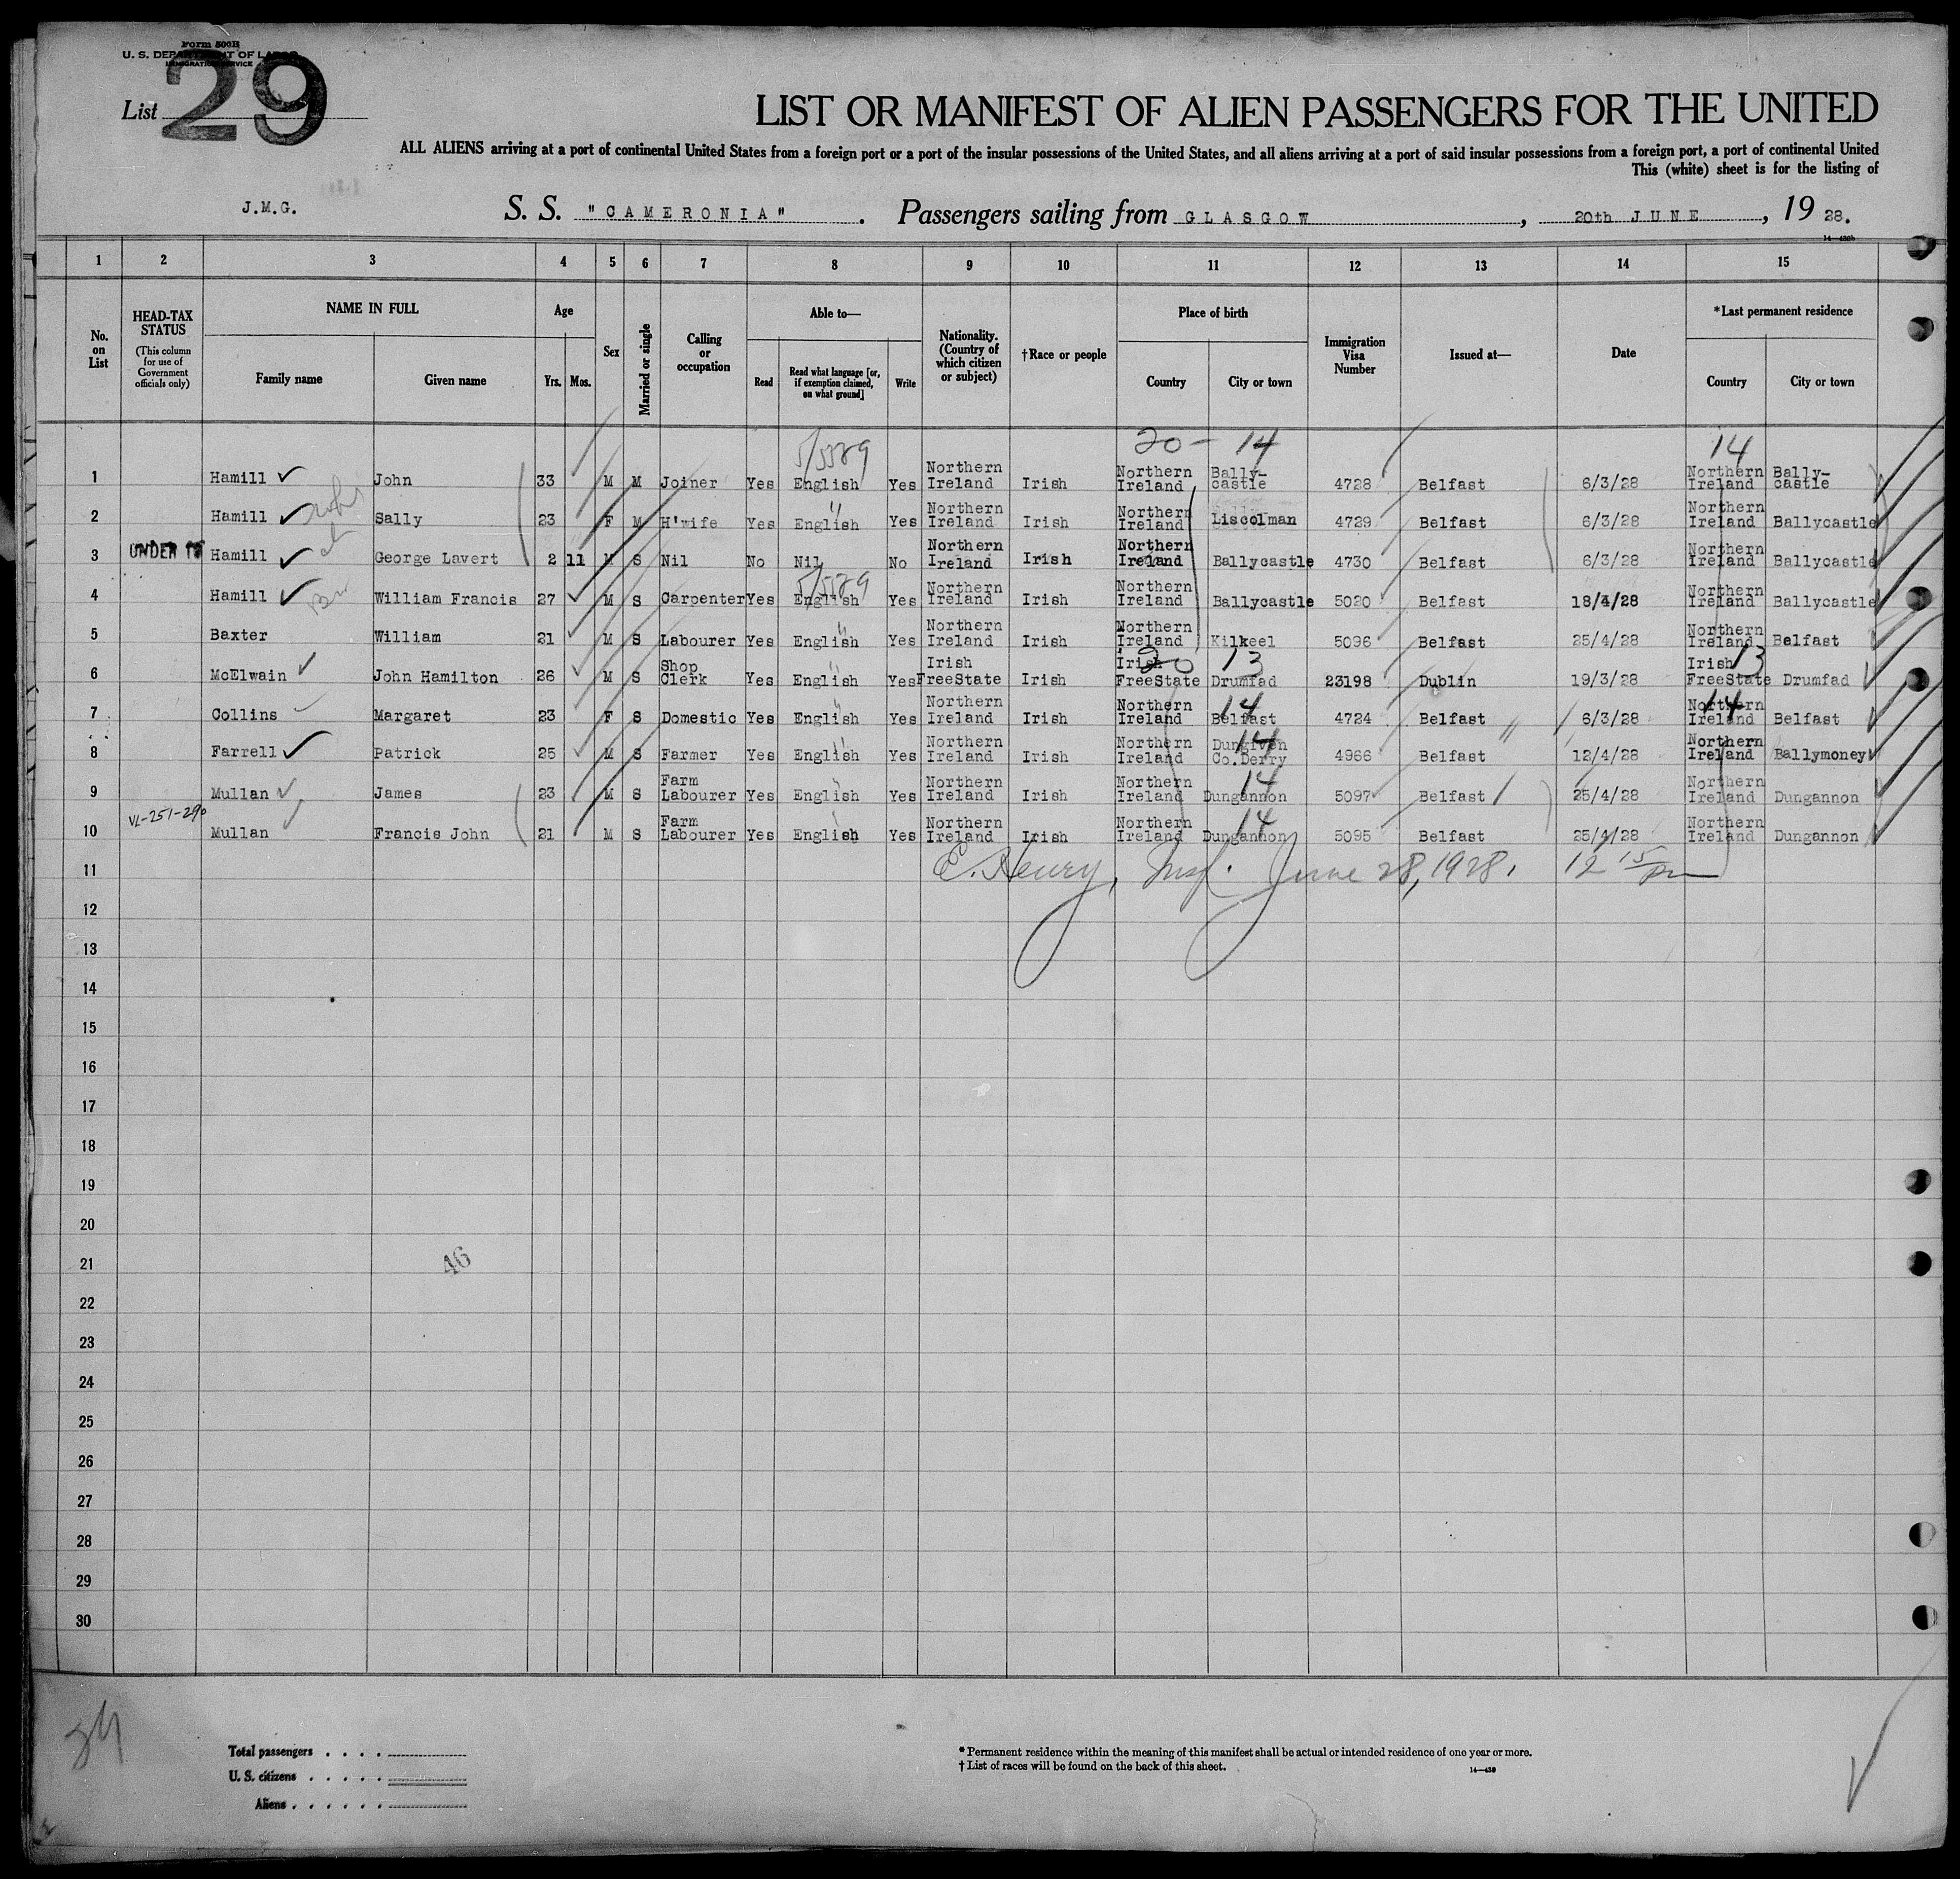 Form 500B
U. S. DEPARTMENT OF LABOR
IMMIGRATION SERVICE
List 29
LIST OR MANIFEST OF ALIEN PASSENGERS FOR THE UNITED
ALL ALIENS arriving at a port of continental United States from a foreign port or a port of the insular possessions of the United States, and all aliens arriving at a port of said insular possessions from a foreign port, a port of continental United
This (white) sheet is for the listing of
J.M.G. S. S. "CAMERONIA" . Passengers sailing from GLASGOW , 20th JUNE , 19 28.
1 2 3 4 5 6 7 8 9 10 11 12 13 14 15
No. on List HEAD-TAX STATUS (This column for use of Government officials only) NAME IN FULL Family name Given name Age Yrs. Mos. Sex Married or single Calling or occupation Able to— Read Read what language [or, if exemption claimed, on what ground] Write Nationality. (Country of which citizen or subject) †Race or people Place of birth Country City or town Immigration Visa Number Issued at— Date *Last permanent residence Country City or town
5/5589 20 - 14 14
1 Hamill John 33 M M Joiner Yes English Yes Northern Ireland Irish Northern Ireland Bally-castle 4728 Belfast 6/3/28 Northern Ireland Bally-castle
2 Hamill Sally 23 F M H'wife Yes English Yes Northern Ireland Irish Northern Ireland Liscolman 4729 Belfast 6/3/28 Northern Ireland Ballycastle
3 UNDER 16 Hamill George Lavert 2 11 M S Nil No Nil No Northern Ireland Irish Northern Ireland Ballycastle 4730 Belfast 6/3/28 Northern Ireland Ballycastle
5/5589
4 Hamill William Francis 27 M S Carpenter Yes English Yes Northern Ireland Irish Northern Ireland Ballycastle 5020 Belfast 18/4/28 Northern Ireland Ballycastle
5 Baxter William 21 M S Labourer Yes English Yes Northern Ireland Irish Northern Ireland Kilkeel 5096 Belfast 25/4/28 Northern Ireland Belfast
20 13 13
6 McElwain John Hamilton 26 M S Shop Clerk Yes English Yes Irish FreeState Irish Irish FreeState Drumfad 23198 Dublin 19/3/28 Irish FreeState Drumfad
14 14
7 Collins Margaret 23 F S Domestic Yes English Yes Northern Ireland Irish Northern Ireland Belfast 4724 Belfast 6/3/28 Northern Ireland Belfast
14
8 Farrell Patrick 25 M S Farmer Yes English Yes Northern Ireland Irish Northern Ireland Dungiven Co.Derry 4966 Belfast 12/4/28 Northern Ireland Ballymoney
14
9 Mullan James 23 M S Farm Labourer Yes English Yes Northern Ireland Irish Northern Ireland Dungannon 5097 Belfast 25/4/28 Northern Ireland Dungannon
VL-251-290 14
10 Mullan Francis John 21 M S Farm Labourer Yes English Yes Northern Ireland Irish Northern Ireland Dungannon 5095 Belfast 25/4/28 Northern Ireland Dungannon
11 E. Henry, Insp. June 28, 1928, 12 15 pm
12
13
14
15
16
17
18
19
20
21 46
22
23
24
25
26
27
28
29
30
Total passengers . . . .
U. S. citizens . . . . .
Aliens . . . . . .
* Permanent residence within the meaning of this manifest shall be actual or intended residence of one year or more.
† List of races will be found on the back of this sheet.
14—430